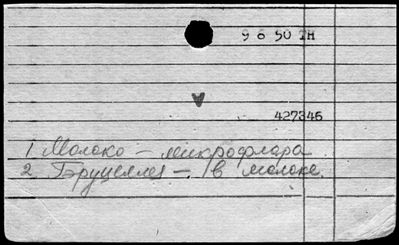 9 6 50 TH
427346
1 Молоко – микрофлара
2 Бруцеллез – в молоке.